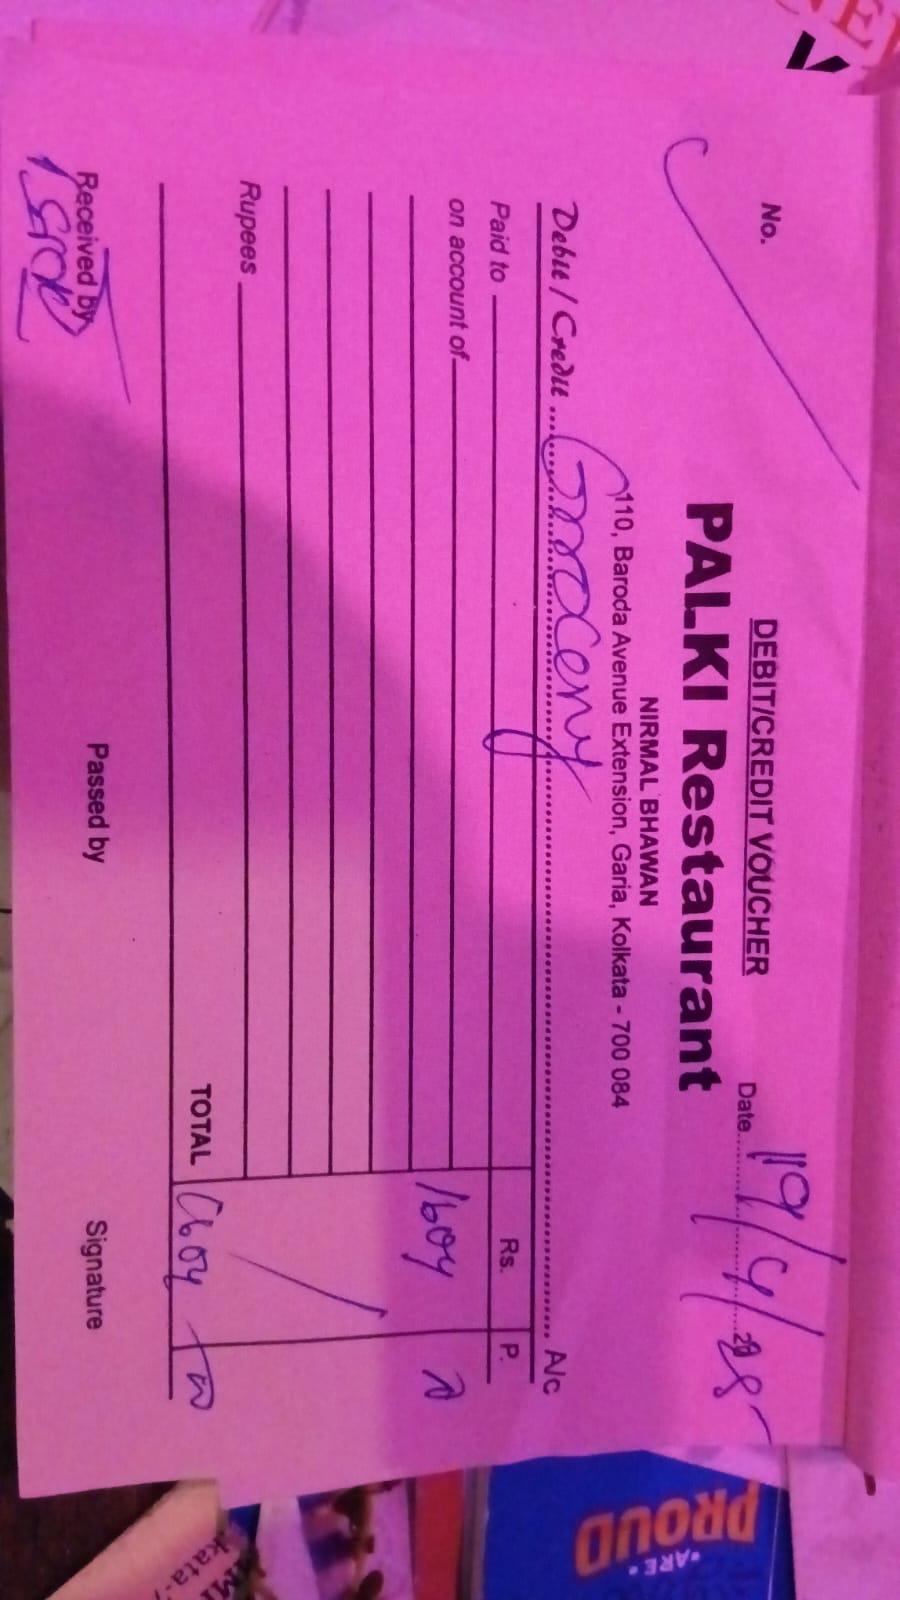 No.
DEBIT/CREDIT VOUCHER
Date 19/4/2025
PALKI Restaurant
NIRMAL BHAWAN
110, Baroda Avenue Extension, Garia, Kolkata - 700 084
Debit / Credit Grocery A/c
Paid to Rs. P.
on account of
1604
Rupees
TOTAL 1604
Received by Passed by Signature
PROUD
•ARE•
kata-